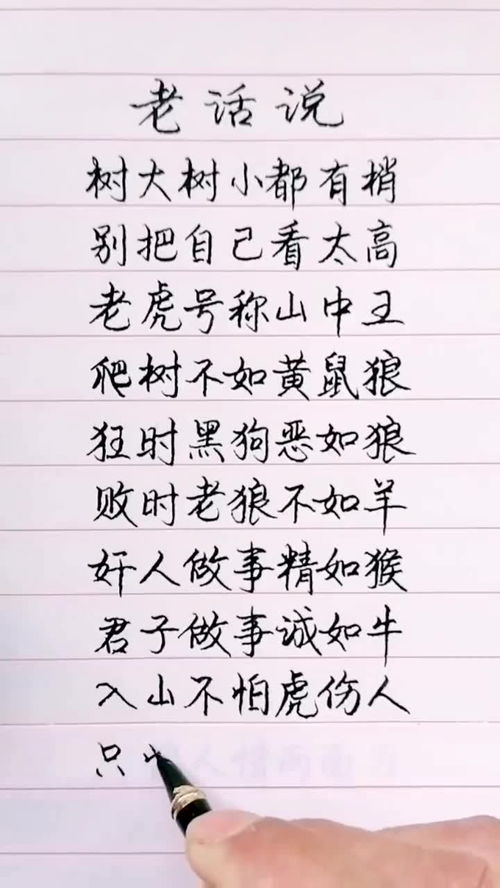 老话说
树大树小都有梢
别把自己看太高
老虎号称山中王
爬树不如黄鼠狼
狂时黑狗恶如狼
败时老狼不如羊
奸人做事精如猴
君子做事诚如牛
入山不怕虎伤人
只